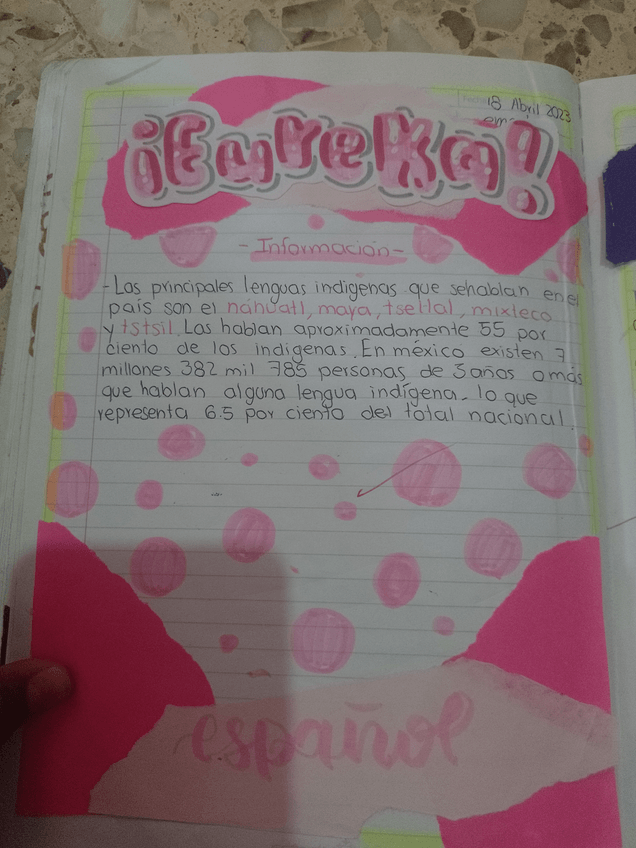 18 Abril 2023
¡Eureka!
- Información -
- Las principales lenguas indígenas que sehablan en el
país son el náhuatl, maya, tseltal, mixteco
y tstsil. Las hablan aproximadamente 55 por
ciento de los indígenas. En méxico existen 7
millones 382 mil 785 personas de 3 años o más
que hablan alguna lengua indígena. lo que
representa 6.5 por ciento del total nacional.
español